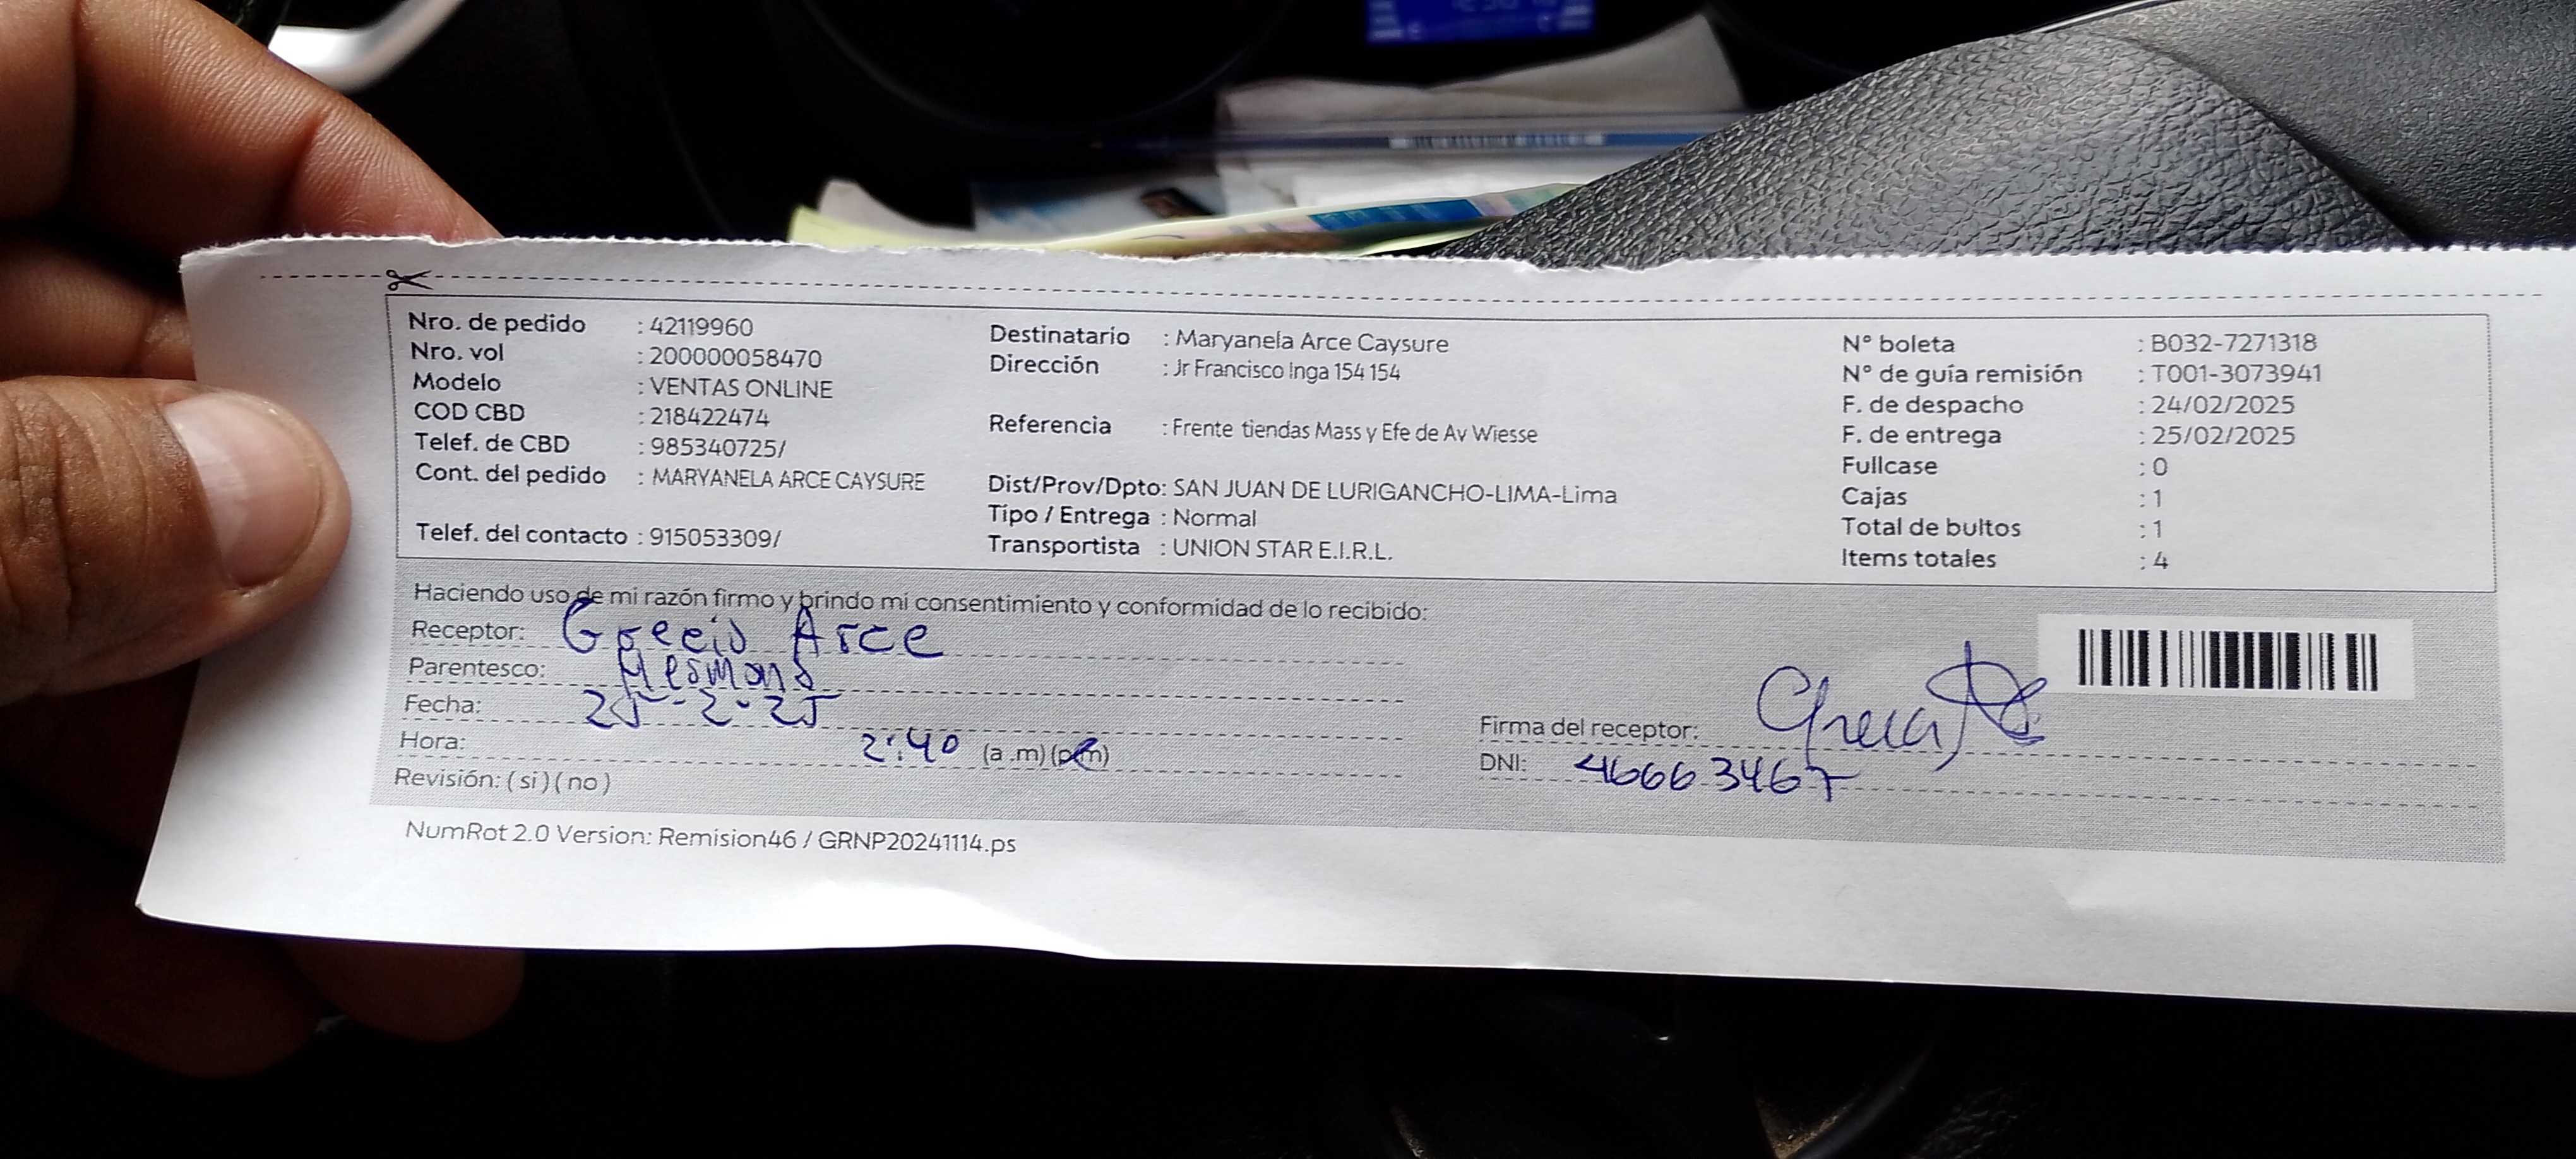 Nro. de pedido : 42119960
Nro. vol : 200000058470
Modelo : VENTAS ONLINE
COD CBD : 218422474
Telef. de CBD : 985340725/
Cont. del pedido : MARYANELA ARCE CAYSURE
Telef. del contacto : 915053309/
Destinatario : Maryanela Arce Caysure
Dirección : Jr Francisco Inga 154 154
Referencia : Frente tiendas Mass y Efe de Av Wiesse
Dist/Prov/Dpto: SAN JUAN DE LURIGANCHO-LIMA-Lima
Tipo / Entrega : Normal
Transportista : UNION STAR E.I.R.L.
N° boleta : B032-7271318
N° de guía remisión : T001-3073941
F. de despacho : 24/02/2025
F. de entrega : 25/02/2025
Fullcase : 0
Cajas : 1
Total de bultos : 1
Items totales : 4
Haciendo uso de mi razón firmo y brindo mi consentimiento y conformidad de lo recibido:
Receptor: Grecia Arce
Parentesco: Hermana
Fecha: 25-2-25
Hora: 2:40 (a .m) (p.m)
Revisión: ( si ) ( no )
Firma del receptor:
DNI: 46663467
NumRot 2.0 Version: Remision46 / GRNP20241114.ps